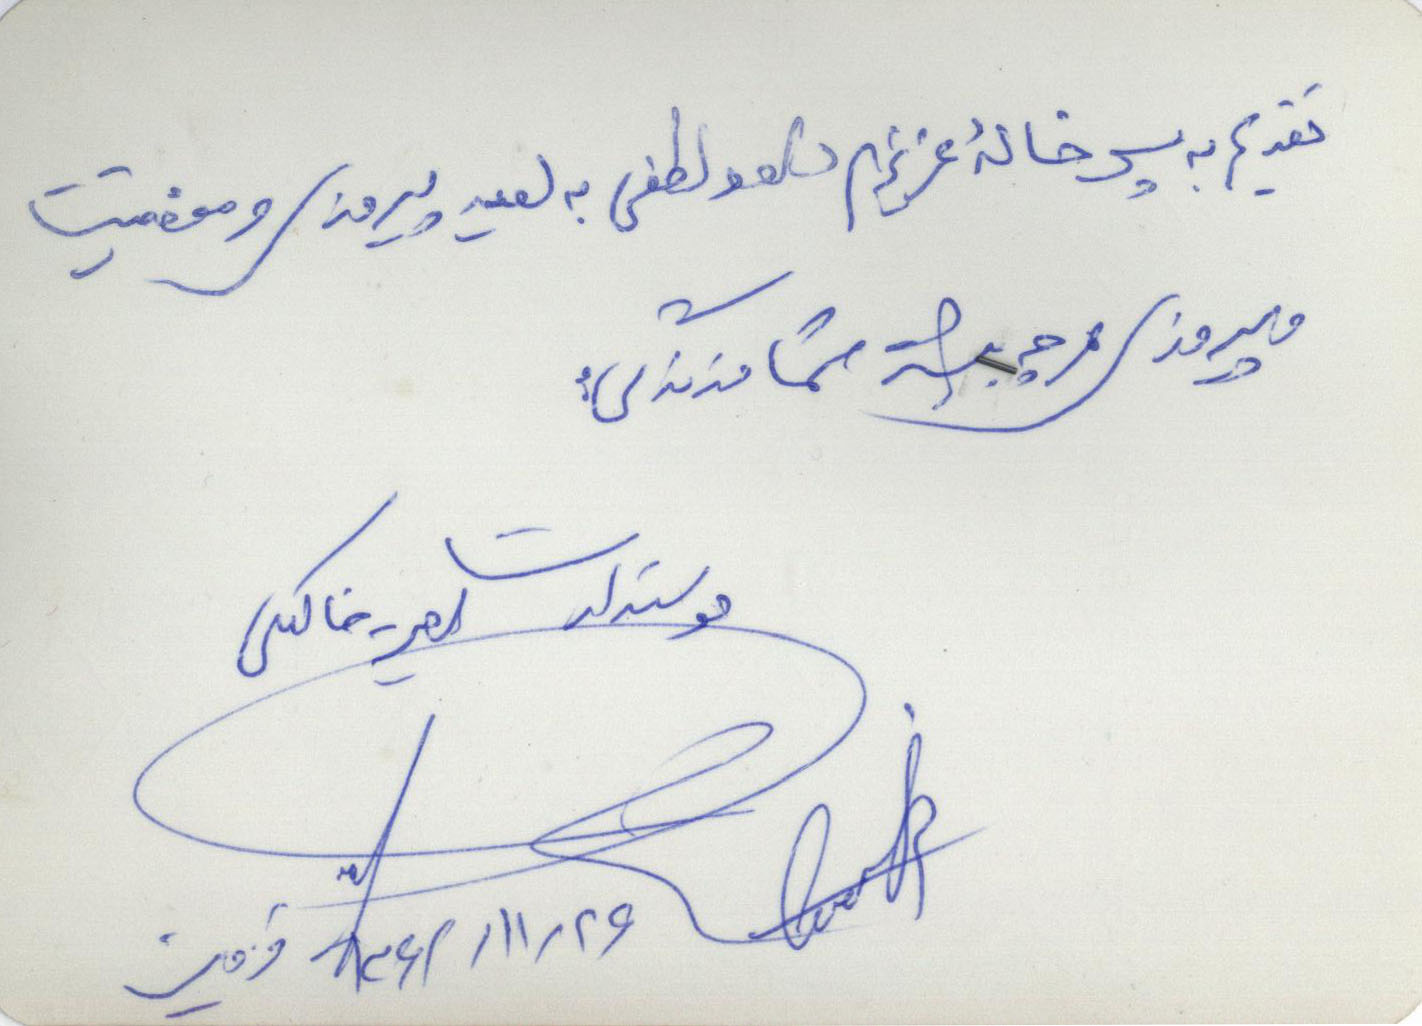 تقدیم به پسر خالهٔ عزیزم داود لطفی به امید پیروزی و موفقیت
و پیروزی هر چه بیشتر شما در زندگی
دوستدارت امیر خاکی
۱۳۶۲/۱۱/۲۶ قزوین